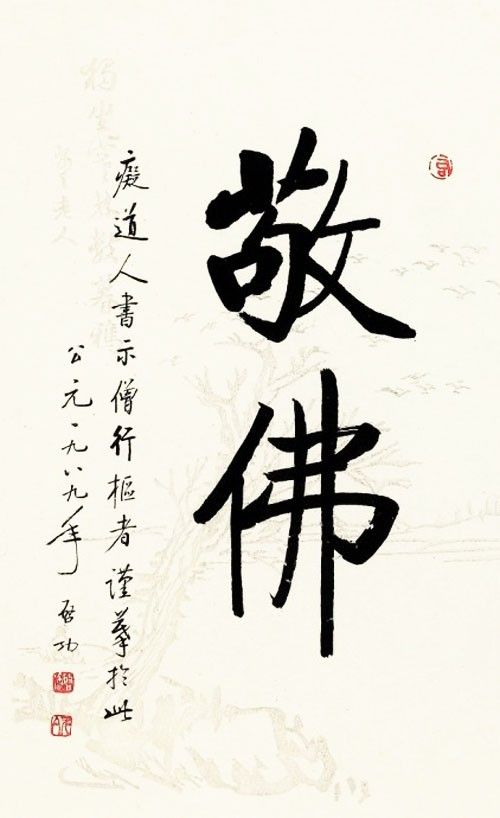 敬佛
癡道人書示僧行樞者謹摹於此
公元一九八九年 啟功